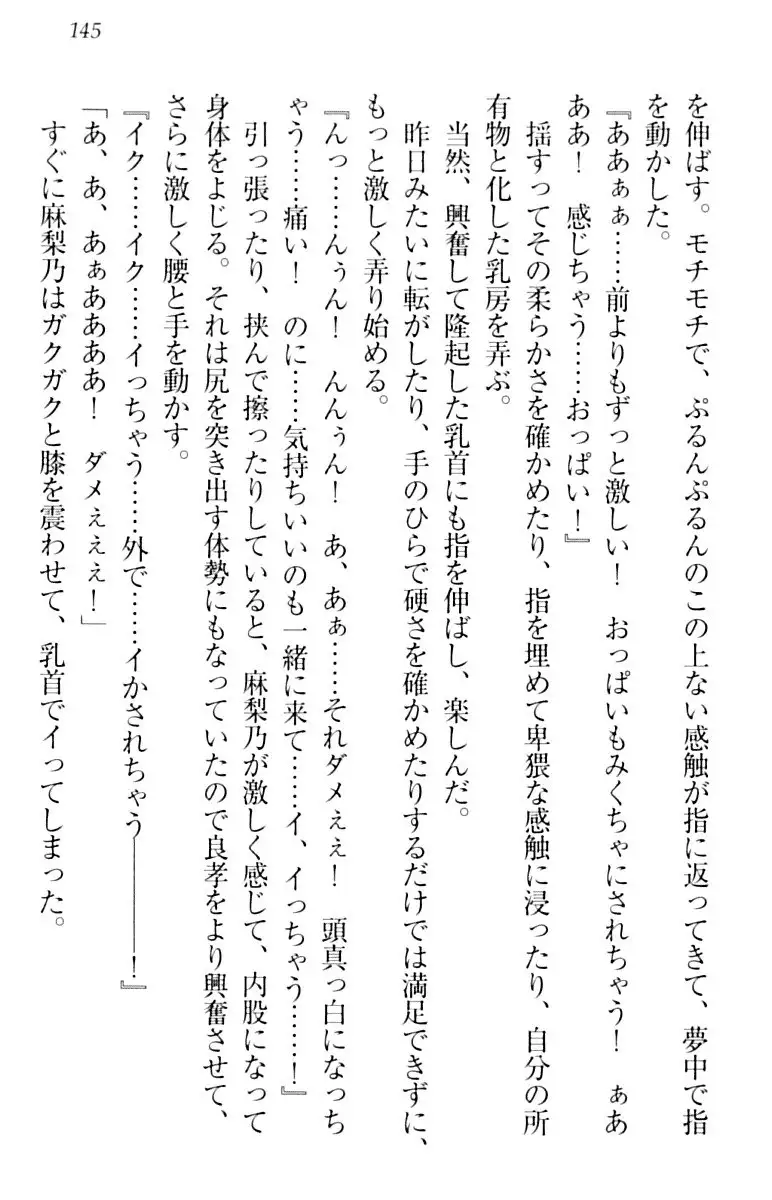 145
を伸ばす。モチモチで、ぷるんぷるんのこの上ない感触が指に返ってきて、夢中で指
を動かした。
『ああぁぁ……前よりもずっと激しい！　おっぱいもみくちゃにされちゃう！　ぁあ
ああ！　感じちゃう……おっぱい！』
　揺すってその柔らかさを確かめたり、指を埋めて卑猥な感触に浸ったり、自分の所
有物と化した乳房を弄ぶ。
　当然、興奮して隆起した乳首にも指を伸ばし、楽しんだ。
　昨日みたいに転がしたり、手のひらで硬さを確かめたりするだけでは満足できずに、
もっと激しく弄り始める。
『んっ……んぅん！　んんぅん！　あ、あぁ……それダメぇぇ！　頭真っ白になっち
ゃう……痛い！　のに……気持ちいいのも一緒に来て……イ、イっちゃう……！』
　引っ張ったり、挟んで擦ったりしていると、麻梨乃が激しく感じて、内股になって
身体をよじる。それは尻を突き出す体勢にもなっていたので良孝をより興奮させて、
さらに激しく腰と手を動かす。
『イク……イク……イっちゃう……外で……イかされちゃう――――！』
「あ、あ、あぁああああ！　ダメぇぇぇ！」
　すぐに麻梨乃はガクガクと膝を震わせて、乳首でイってしまった。